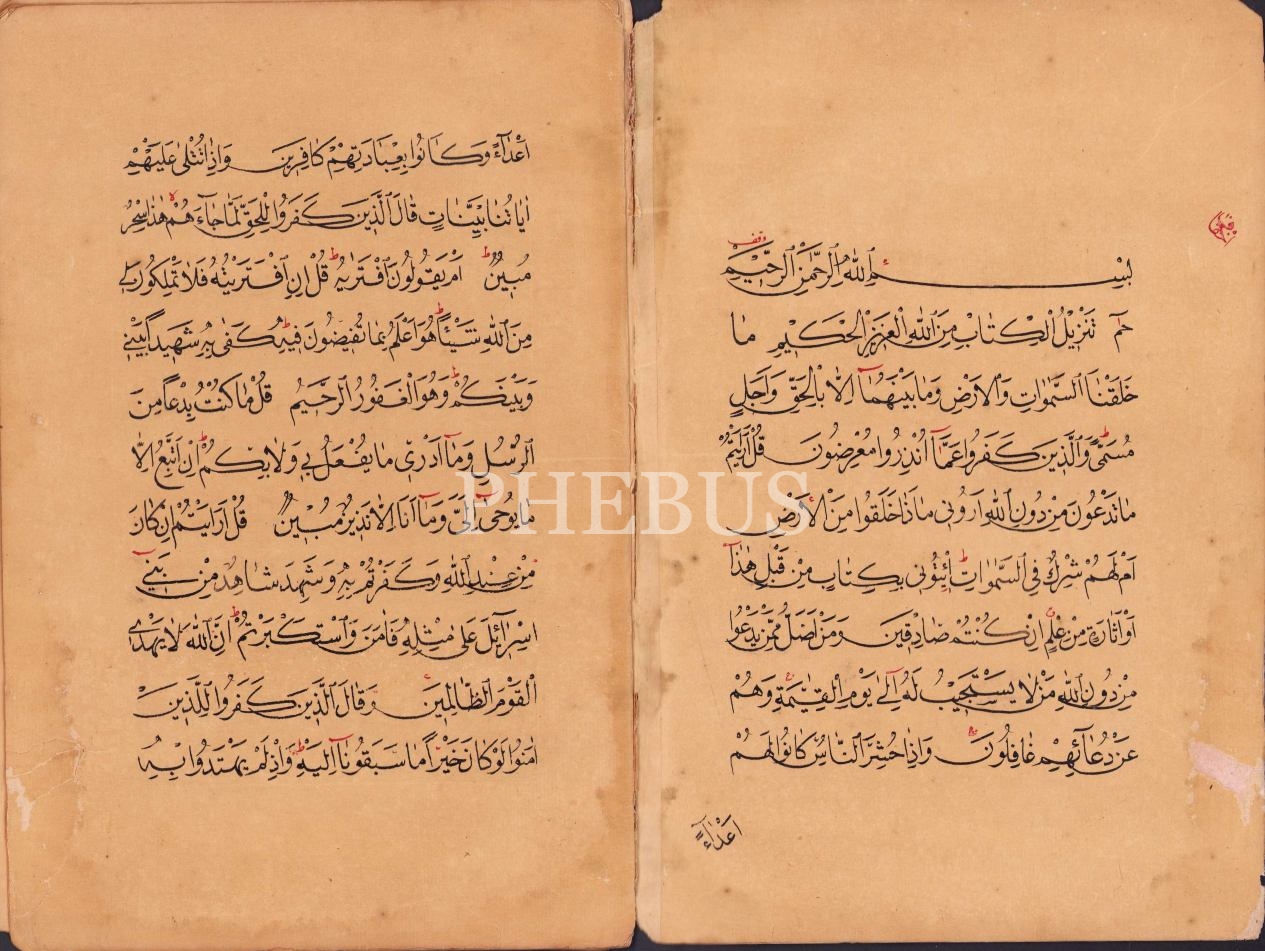 وقف
بِسْمِ اللّٰهِ الرَّحْمٰنِ الرَّحِيمِ
حٰمٓ تَنْزِيلُ الْكِتَابِ مِنَ اللّٰهِ الْعَزِيزِ الْحَكِيمِ مَا
خَلَقْنَا السَّمٰوَاتِ وَالْاَرْضَ وَمَا بَيْنَهُمَٓا اِلَّا بِالْحَقِّ وَاَجَلٍ
مُسَمًّىۜ وَالَّذِينَ كَفَرُوا عَمَّٓا اُنْذِرُوا مُعْرِضُونَ قُلْ اَرَاَيْتُمْ
مَا تَدْعُونَ مِنْ دُونِ اللّٰهِ اَرُونِي مَاذَا خَلَقُوا مِنَ الْاَرْضِ
اَمْ لَهُمْ شِرْكٌ فِي السَّمٰوَاتِۜ ائْتُونِي بِكِتَابٍ مِنْ قَبْلِ هٰذَٓا
اَوْ اَثَارَةٍ مِنْ عِلْمٍ اِنْ كُنْتُمْ صَادِقِينَ وَمَنْ اَضَلُّ مِمَّنْ يَدْعُوا
مِنْ دُونِ اللّٰهِ مَنْ لَا يَسْتَجِيبُ لَهُٓ اِلٰى يَوْمِ الْقِيٰمَةِ وَهُمْ
عَنْ دُعَٓائِهِمْ غَافِلُونَ وَاِذَا حُشِرَ النَّاسُ كَانُوا لَهُمْ
اَعْدَٓاءً
اَعْدَٓاءً وَكَانُوا بِعِبَادَتِهِمْ كَافِرِينَ وَاِذَا تُتْلٰى عَلَيْهِمْ
اٰيَاتُنَا بَيِّنَاتٍ قَالَ الَّذِينَ كَفَرُوا لِلْحَقِّ لَمَّا جَٓاءَهُمْۙ هٰذَا سِحْرٌ
مُبِينٌۜ اَمْ يَقُولُونَ افْتَرٰيهُۜ قُلْ اِنِ افْتَرَيْتُهُ فَلَا تَمْلِكُونَ لِي
مِنَ اللّٰهِ شَيْئًاۜ هُوَ اَعْلَمُ بِمَا تُفِيضُونَ فِيهِۜ كَفٰى بِهِ شَهِيدًا بَيْنِي
وَبَيْنَكُمْۜ وَهُوَ الْغَفُورُ الرَّحِيمُ قُلْ مَا كُنْتُ بِدْعًا مِنَ
الرُّسُلِ وَمَٓا اَدْرِي مَا يُفْعَلُ بِي وَلَا بِكُمْۜ اِنْ اَتَّبِعُ اِلَّا
مَا يُوحٰٓى اِلَيَّ وَمَٓا اَنَا اِلَّا نَذِيرٌ مُبِينٌ قُلْ اَرَاَيْتُمْ اِنْ كَانَ
مِنْ عِنْدِ اللّٰهِ وَكَفَرْتُمْ بِهِ وَشَهِدَ شَاهِدٌ مِنْ بَنِٓي
اِسْرَٓائِلَ عَلٰى مِثْلِهِ فَاٰمَنَ وَاسْتَكْبَرْتُمْۜ اِنَّ اللّٰهَ لَا يَهْدِي
الْقَوْمَ الظَّالِمِينَ وَقَالَ الَّذِينَ كَفَرُوا لِلَّذِينَ
اٰمَنُوا لَوْ كَانَ خَيْرًا مَا سَبَقُونَٓا اِلَيْهِۜ وَاِذْ لَمْ يَهْتَدُوا بِهِ
PHEBUS